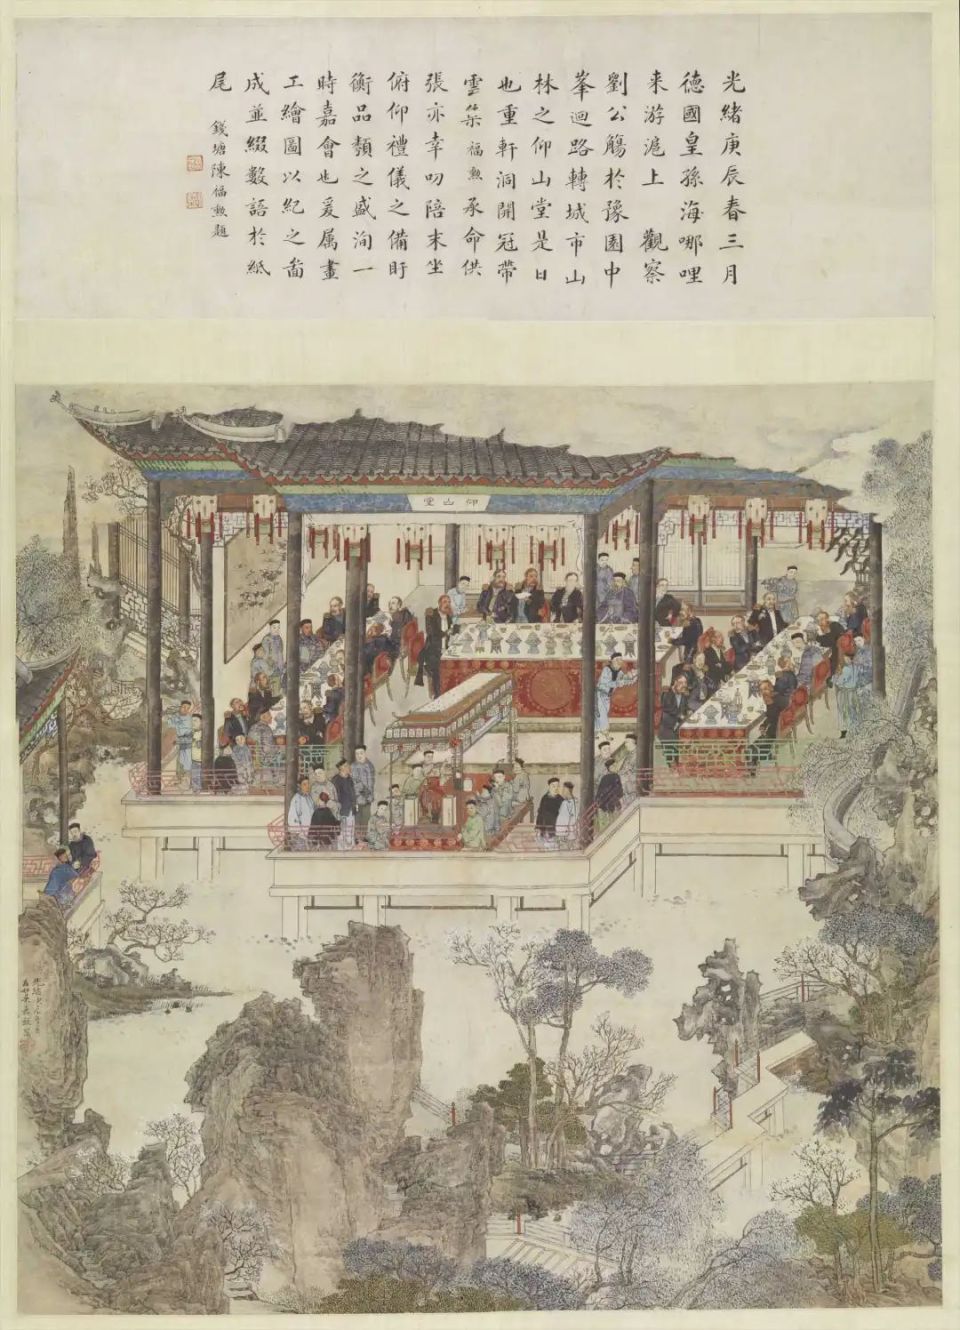 光緒庚辰春三月
德國皇孫海哪哩
来游滬上 觀察
劉公觴於豫園中
峯迴路轉城市山
林之仰山堂是日
也重軒洞開冠帶
雲榮福勲承命供
張亦幸叨陪末坐
俯仰禮儀之備盱
衡品類之盛洵一
時嘉會也爰属畫
工繪圖以紀之啚
成並綴數語於紙
尾
錢塘陳福勲題
仰山堂